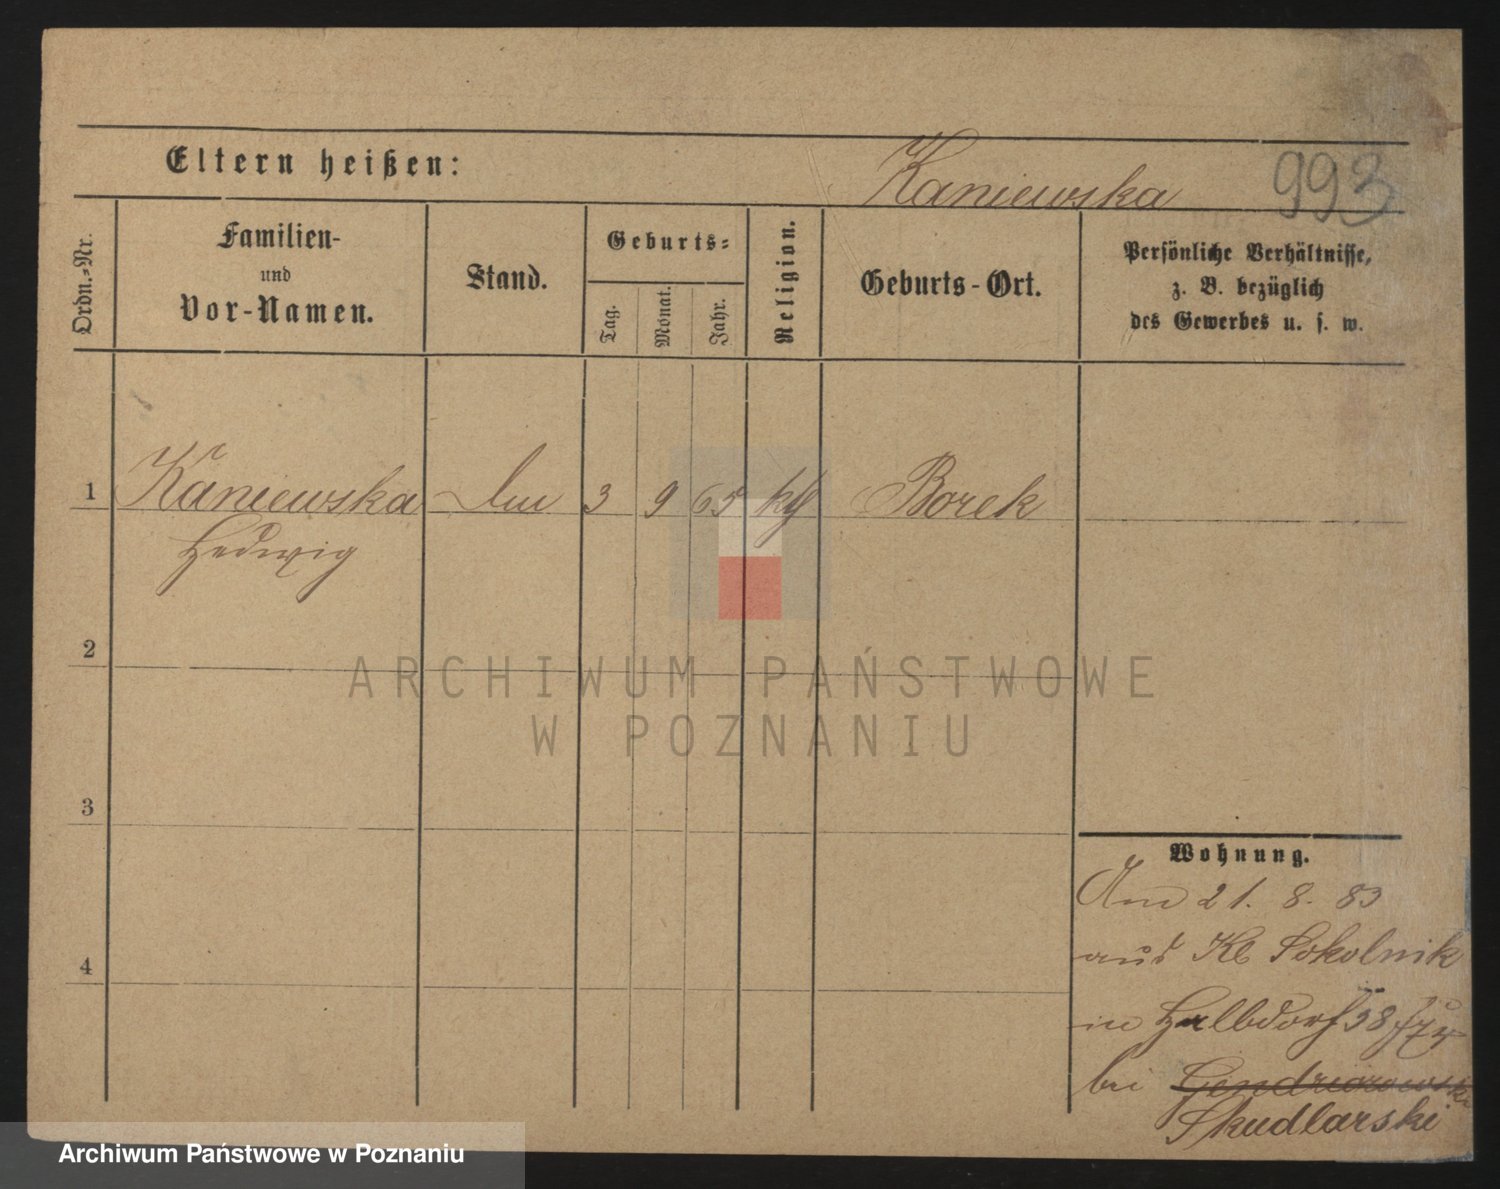 Eltern heißen:
Kaniewska
993
Ordn.-Nr.
Familien-
und
Vor-Namen.
Stand.
Geburts-
Tag.
Monat.
Jahr.
Religion.
Geburts-Ort.
Persönliche Verhältnisse,
z. B. bezüglich
des Gewerbes u. s. w.
1
Kaniewska
3
9
65
kth
Borek
Hedwig
2
3
4
Wohnung.
Am 21. 8. 83
aus Kl Sokolnik
in Halbdorf 38
bei
Skudlarski
ARCHIWUM PAŃSTWOWE
W POZNANIU
Archiwum Państwowe w Poznaniu